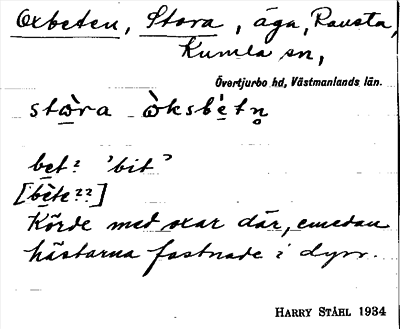 Oxbeten, Stora, äga, Ransta,
Kumla sn,
Övertjurbo hd, Västmanlands län.
stὼra ὼksbètn̥
bet: 'bit'
[bète??]
Körde med oxar där, emedan
hästarna fastnade i dyn.
HARRY STÅHL 1934